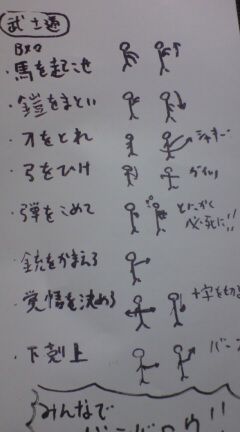 武士道
・馬を起こせ
・鎧をまとい
・刀をとれ シャキーン
・弓をひけ グイッ
・弾をこめて とにかく必死に!!
・銃をかまえろ
・覚悟を決めろ 十字を切る
・下剋上
みんなで